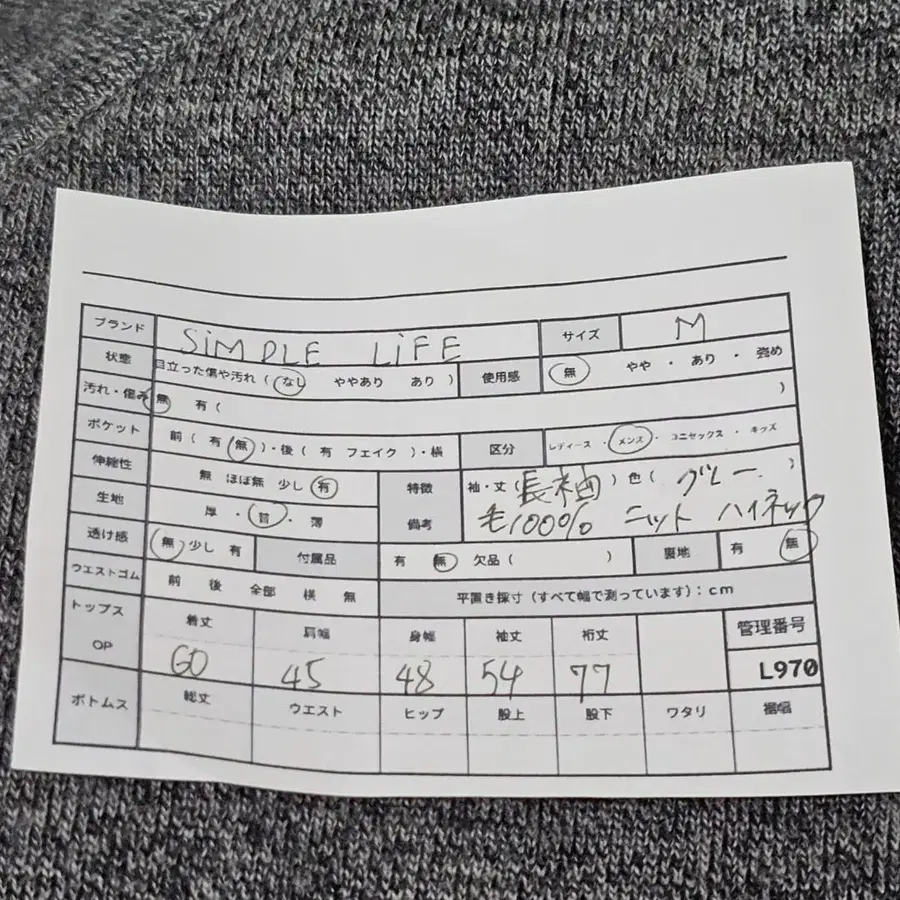 ブランド SiMPLE LiFE サイズ M
状態 目立った傷や汚れ ( なし ややあり あり ) 使用感 無 やや ・ あり ・ 強め
汚れ・傷み 無 有 ( )
ポケット 前 ( 有 無 ) ・後 ( 有 フェイク ) ・横 区分 レディース ・ メンズ ・ ユニセックス ・ キッズ
伸縮性 無 ほぼ無 少し 有 特徴 袖・丈 ( 長袖 ) 色 ( グレー )
生地 厚 ・ 普 ・ 薄 備考 毛100% ニット ハイネック
透け感 無 少し 有 付属品 有 無 欠品 ( ) 裏地 有 無
ウエストゴム 前 後 全部 横 無 平置き採寸 (すべて幅で測っています) : cm
トップス OP 着丈 肩幅 身幅 袖丈 裄丈 管理番号
60 45 48 54 77 L970
ボトムス 総丈 ウエスト ヒップ 股上 股下 ワタリ 裾幅